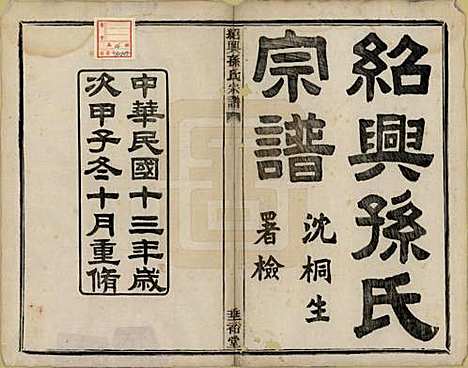 紹興孫氏
宗譜
沈桐生
署檢
紹興孫氏宗譜
垂裕堂
中華民國十三年歲
次甲子冬十月重脩